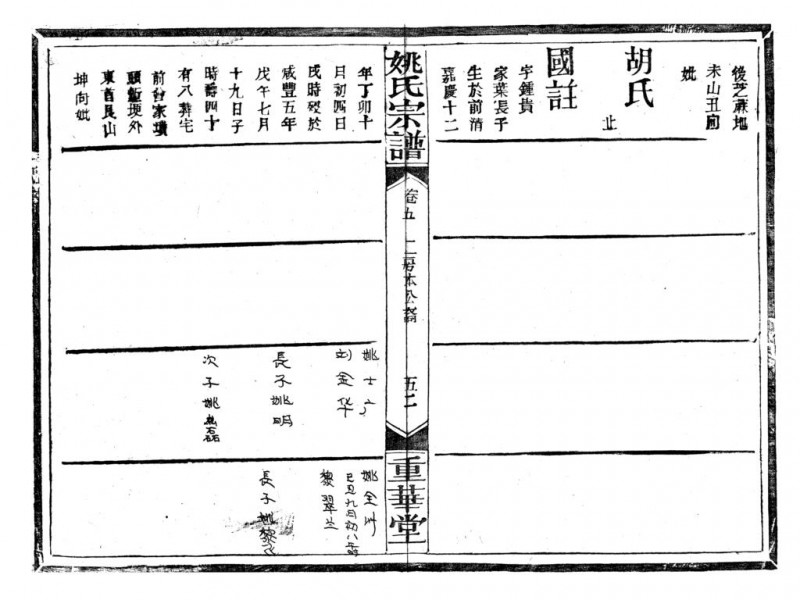 後芝蔴地
未山丑向
妣
胡氏
止
國註
字鍾貴
家葉長子
生於前清
嘉慶十二
姚氏宗譜
卷五
五二
重華堂
年丁卯十
日初四日
戌時歿於
咸豐五年
戊午七月
十九日子
時壽四十
有八葬宅
前台家墳
頭飯埂外
東首艮山
坤向妣
姚士
刘金华
長子姚明
次子姚磊
姚全
己丑九月初八
黎翠兰
長子姚黎